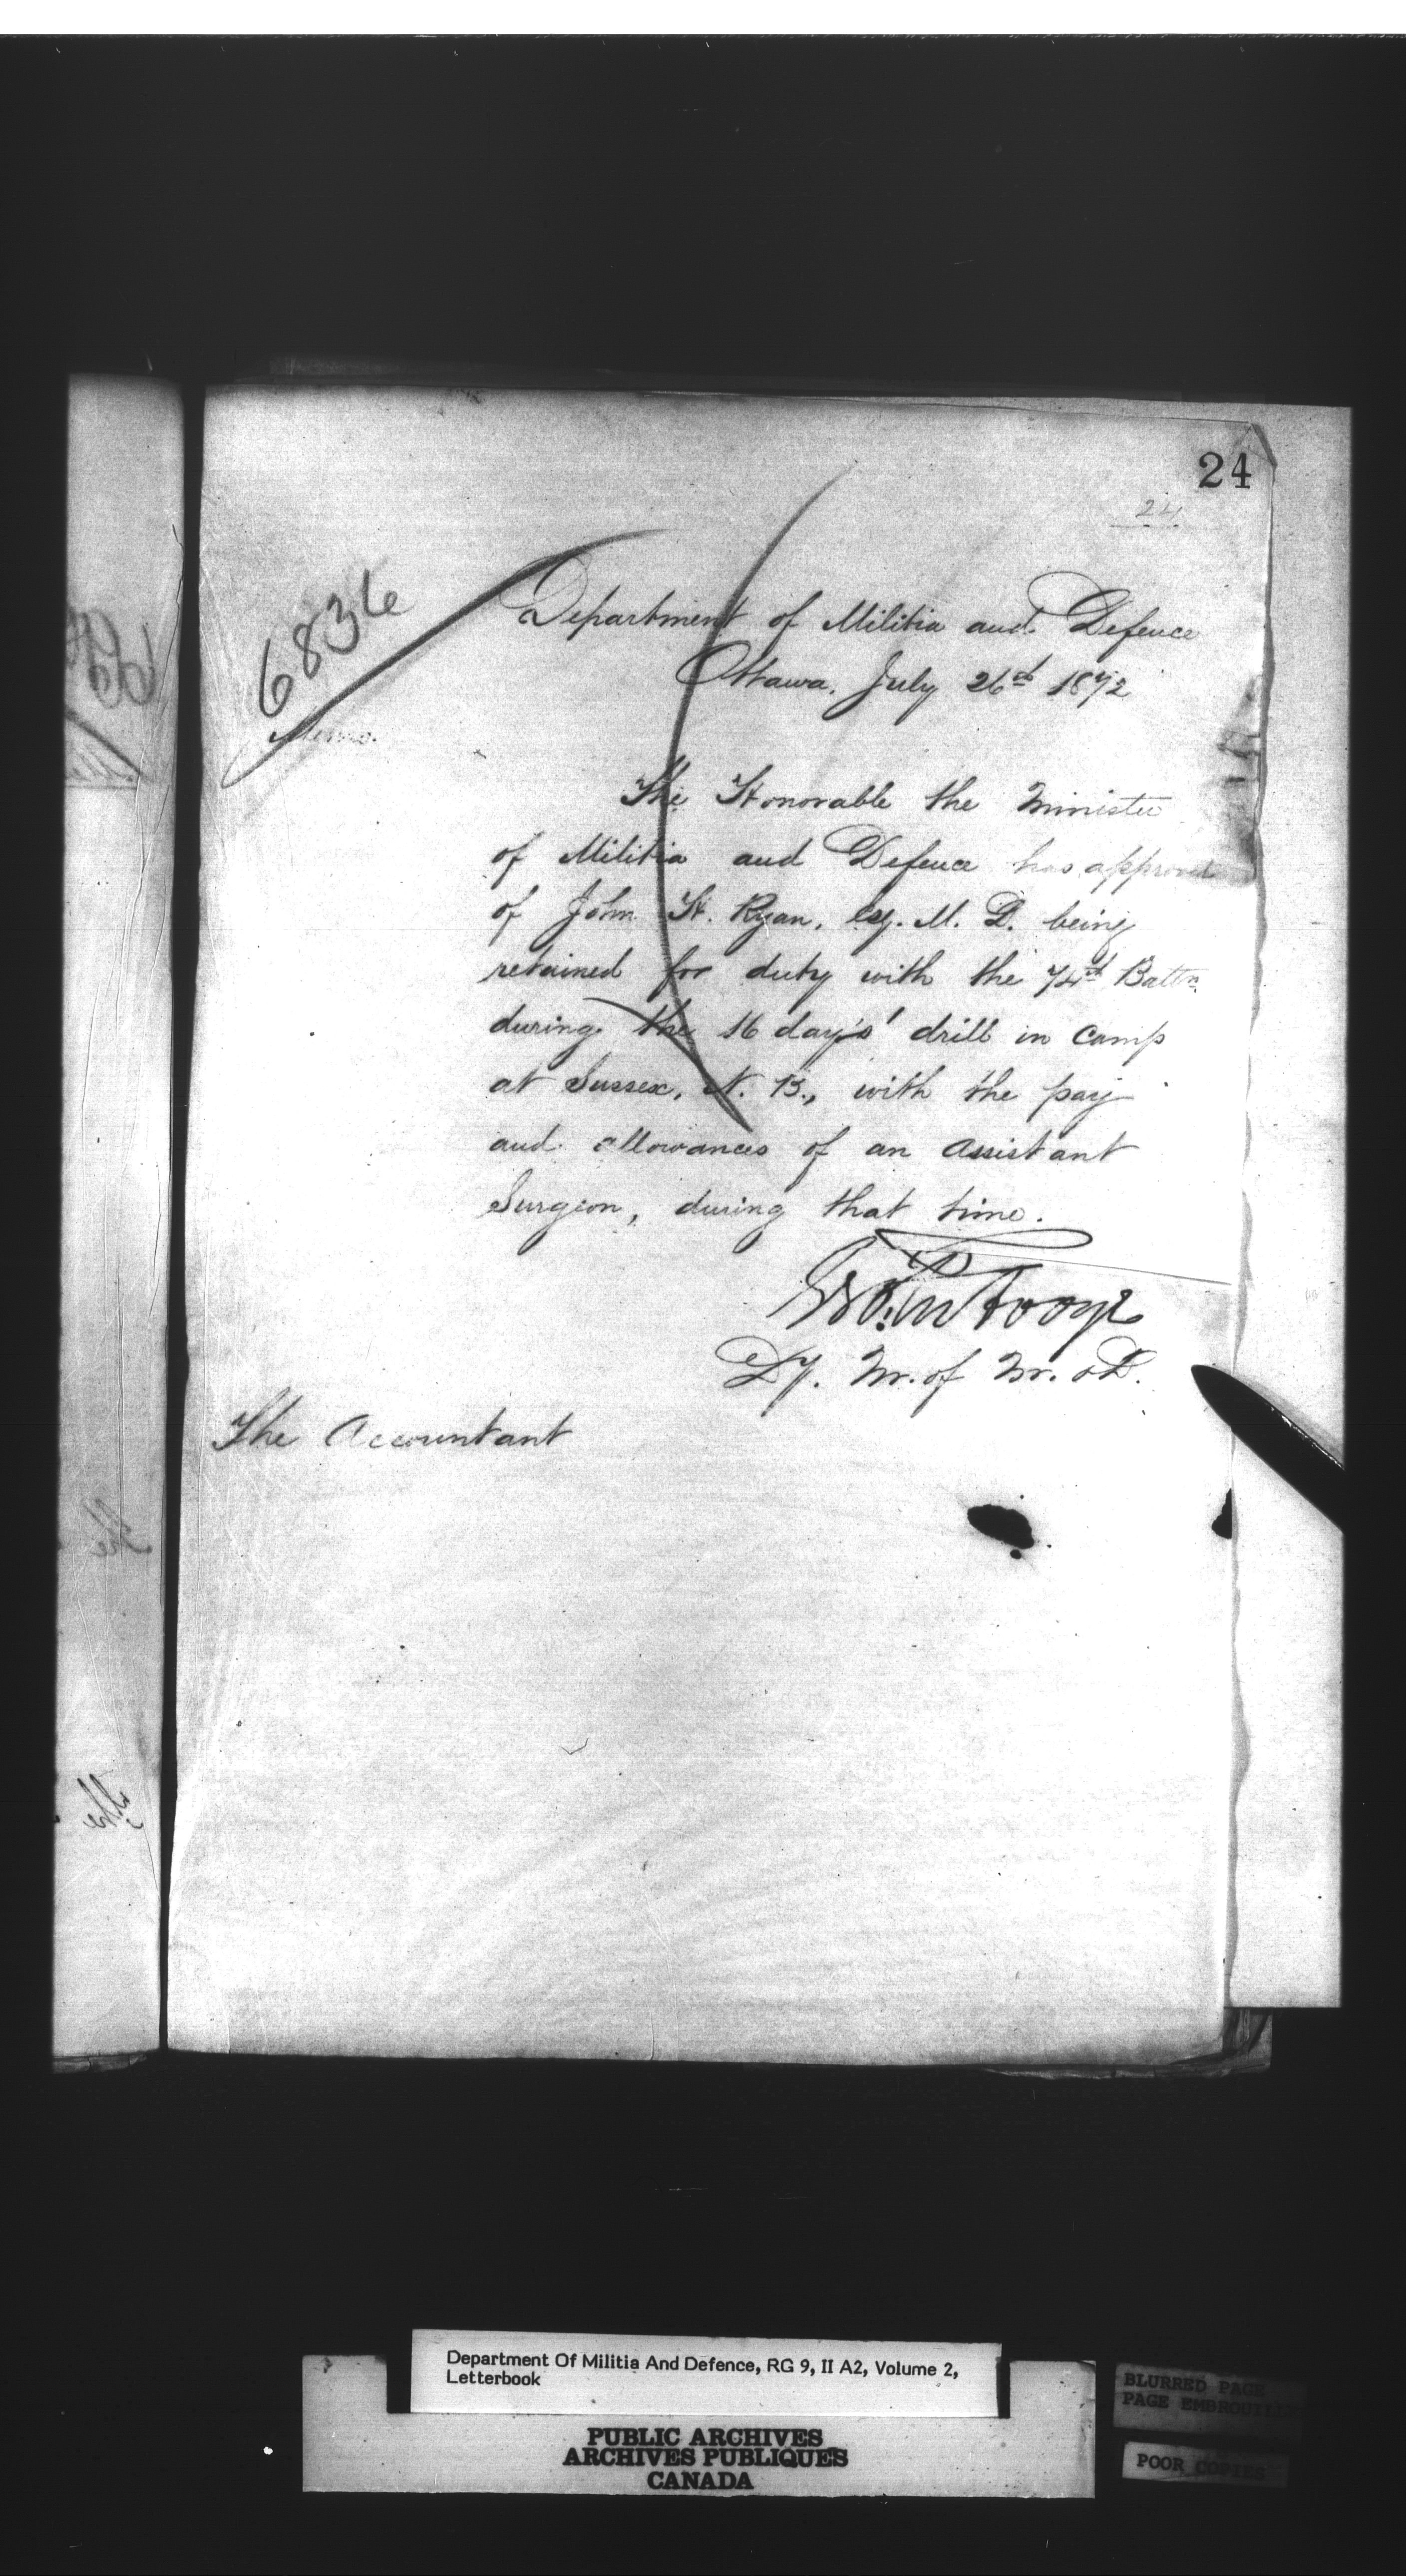 24
24
6836
Department of Militia and Defence
Ottawa, July 26th 1872
Memo.
The Honorable the Minister
of Militia and Defence has approved
of John H. Ryan, Esq. M. D. being
retained for duty with the 74th Battn.
during the 16 day's' drill in camp
at Sussex, N. B., with the pay
and allowances of an Assistant
Surgeon, during that time.
Dy. M. of M. & D.
The Accountant
The
The
Department Of Militia And Defence, RG 9, II A2, Volume 2,
Letterbook
PUBLIC ARCHIVES
ARCHIVES PUBLIQUES
CANADA
BLURRED PAGE
PAGE EMBROUILLEE
POOR COPIES